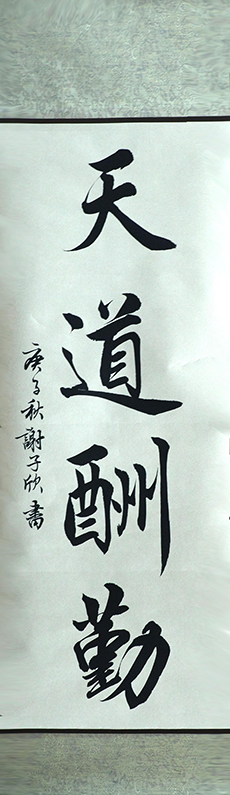 天道酬勤
庚子秋謝子欣書